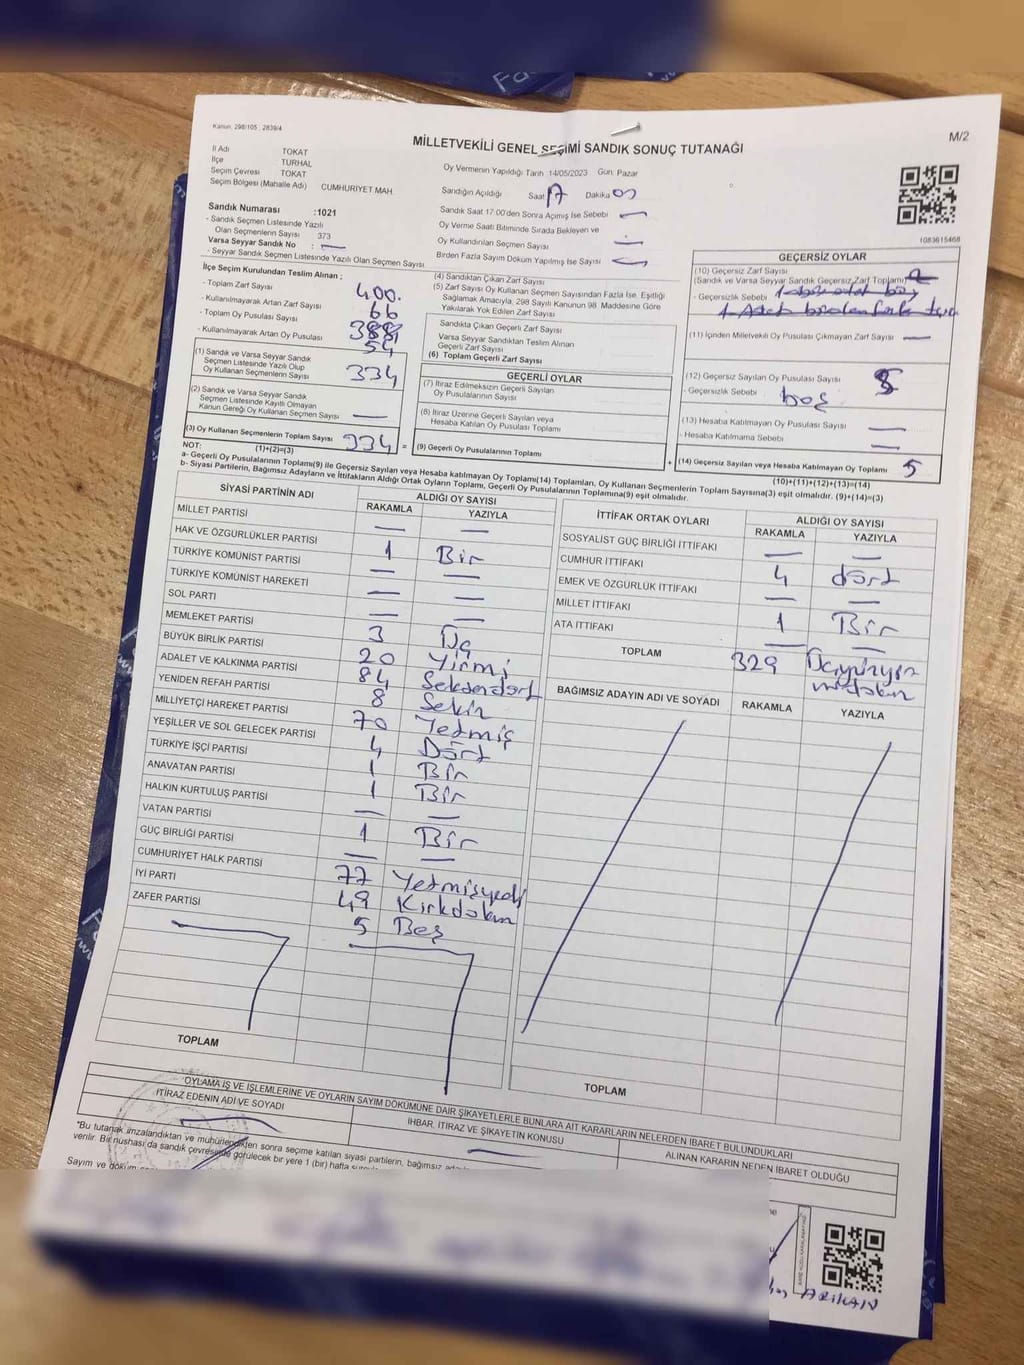 Kanun, 298/105 , 2839/4
M/2
MİLLETVEKİLİ GENEL SEÇİMİ SANDIK SONUÇ TUTANAĞI
İl Adı TOKAT
İlçe TURHAL
Seçim Çevresi TOKAT
Seçim Bölgesi (Mahalle Adı) CUMHURİYET MAH
Sandık Numarası :1021
- Sandık Seçmen Listesinde Yazılı
Olan Seçmenlerin Sayısı 373
Varsa Seyyar Sandık No : —
- Seyyar Sandık Seçmen Listesinde Yazılı Olan Seçmen Sayısı
Oy Vermenin Yapıldığı Tarih 14/05/2023 Gün: Pazar
Sandığın Açıldığı Saat 17 Dakika 00
Sandık Saat 17:00'den Sonra Açılmış İse Sebebi —
Oy Verme Saati Bitiminde Sırada Bekleyen ve
Oy Kullandırılan Seçmen Sayısı —
Birden Fazla Sayım Döküm Yapılmış İse Sayısı —
1083615468
İlçe Seçim Kurulundan Teslim Alınan ;
- Toplam Zarf Sayısı 400.
- Kullanılmayarak Artan Zarf Sayısı 66
- Toplam Oy Pusulası Sayısı 388
- Kullanılmayarak Artan Oy Pusulası 54
(1) Sandık ve Varsa Seyyar Sandık
Seçmen Listesinde Yazılı Olup
Oy Kullanan Seçmenlerin Sayısı 334
(2) Sandık ve Varsa Seyyar Sandık
Seçmen Listesinde Kayıtlı Olmayan
Kanun Gereği Oy Kullanan Seçmen Sayısı —
(3) Oy Kullanan Seçmenlerin Toplam Sayısı 334 =
(1)+(2)=(3)
(4) Sandıktan Çıkan Zarf Sayısı
(5) Zarf Sayısı Oy Kullanan Seçmen Sayısından Fazla İse, Eşitliği
Sağlamak Amacıyla, 298 Sayılı Kanunun 98. Maddesine Göre
Yakılarak Yok Edilen Zarf Sayısı
Sandıkta Çıkan Geçerli Zarf Sayısı
Varsa Seyyar Sandıktan Teslim Alınan
Geçerli Zarf Sayısı
(6) Toplam Geçerli Zarf Sayısı
GEÇERLİ OYLAR
(7) İtiraz Edilmeksizin Geçerli Sayılan
Oy Pusulalarının Sayısı
(8) İtiraz Üzerine Geçerli Sayılan veya
Hesaba Katılan Oy Pusulası Toplamı
(9) Geçerli Oy Pusulalarının Toplamı
+
GEÇERSİZ OYLAR
(10) Geçersiz Zarf Sayısı
(Sandık ve Varsa Seyyar Sandık Geçersiz Zarf Toplamı)
- Geçersizlik Sebebi
(11) İçinden Milletvekili Oy Pusulası Çıkmayan Zarf Sayısı —
(12) Geçersiz Sayılan Oy Pusulası Sayısı 5
- Geçersizlik Sebebi boş
(13) Hesaba Katılmayan Oy Pusulası Sayısı —
- Hesaba Katılmama Sebebi —
(14) Geçersiz Sayılan veya Hesaba Katılmayan Oy Toplamı 5
(10)+(11)+(12)+(13)=(14)
NOT:
a- Geçerli Oy Pusulalarının Toplamı(9) ile Geçersiz Sayılan veya Hesaba katılmayan Oy Toplamı(14) Toplamları, Oy Kullanan Seçmenlerin Toplam Sayısına(3) eşit olmalıdır. (9)+(14)=(3)
b- Siyasi Partilerin, Bağımsız Adayların ve İttifakların Aldığı Ortak Oyların Toplamı, Geçerli Oy Pusulalarının Toplamına(9) eşit olmalıdır.
SİYASİ PARTİNİN ADI ALDIĞI OY SAYISI
RAKAMLA YAZIYLA
MİLLET PARTİSİ — —
HAK VE ÖZGÜRLÜKLER PARTİSİ 1 Bir
TÜRKİYE KOMÜNİST PARTİSİ — —
TÜRKİYE KOMÜNİST HAREKETİ — —
SOL PARTİ — —
MEMLEKET PARTİSİ 3 Üç
BÜYÜK BİRLİK PARTİSİ 20 Yirmi
ADALET VE KALKINMA PARTİSİ 84 Seksendört
YENİDEN REFAH PARTİSİ 8 Sekiz
MİLLİYETÇİ HAREKET PARTİSİ 70 Yetmiş
YEŞİLLER VE SOL GELECEK PARTİSİ 4 Dört
TÜRKİYE İŞÇİ PARTİSİ 1 Bir
ANAVATAN PARTİSİ 1 Bir
HALKIN KURTULUŞ PARTİSİ — —
VATAN PARTİSİ 1 Bir
GÜÇ BİRLİĞİ PARTİSİ — —
CUMHURİYET HALK PARTİSİ 77 Yetmişyedi
İYİ PARTİ 49 Kırkdokuz
ZAFER PARTİSİ 5 Beş
TOPLAM
İTTİFAK ORTAK OYLARI ALDIĞI OY SAYISI
RAKAMLA YAZIYLA
SOSYALİST GÜÇ BİRLİĞİ İTTİFAKI — —
CUMHUR İTTİFAKI 4 dört
EMEK VE ÖZGÜRLÜK İTTİFAKI — —
MİLLET İTTİFAKI 1 Bir
ATA İTTİFAKI —
TOPLAM 329
BAĞIMSIZ ADAYIN ADI VE SOYADI RAKAMLA YAZIYLA
TOPLAM
OYLAMA İŞ VE İŞLEMLERİNE VE OYLARIN SAYIM DÖKÜMÜNE DAİR ŞİKAYETLERLE BUNLARA AİT KARARLARIN NELERDEN İBARET BULUNDUKLARI
İTİRAZ EDENİN ADI VE SOYADI
İHBAR, İTİRAZ VE ŞİKAYETİN KONUSU
ALINAN KARARIN NEDEN İBARET OLDUĞU
"Bu tutanak imzalandıktan ve mühürlendikten sonra seçime katılan siyasi partilerin, bağımsız
verilir. Bir nüshası da sandık çevresinde görülecek bir yere 1 (bir) hafta
Sayım ve döküm
ARIKAN